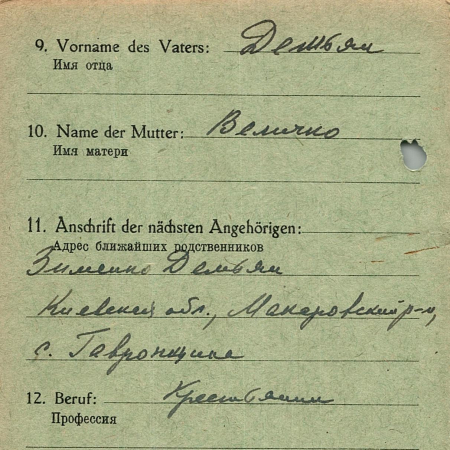 9. Vorname des Vaters: Демьян
Имя отца
10. Name der Mutter: Величко
Имя матери
11. Anschrift der nächsten Angehörigen:
Адрес ближайших родственников
Зименко Демьян
Киевская обл., Макаровский р-н,
с. Гавронщина
12. Beruf: Крестьянин
Профессия